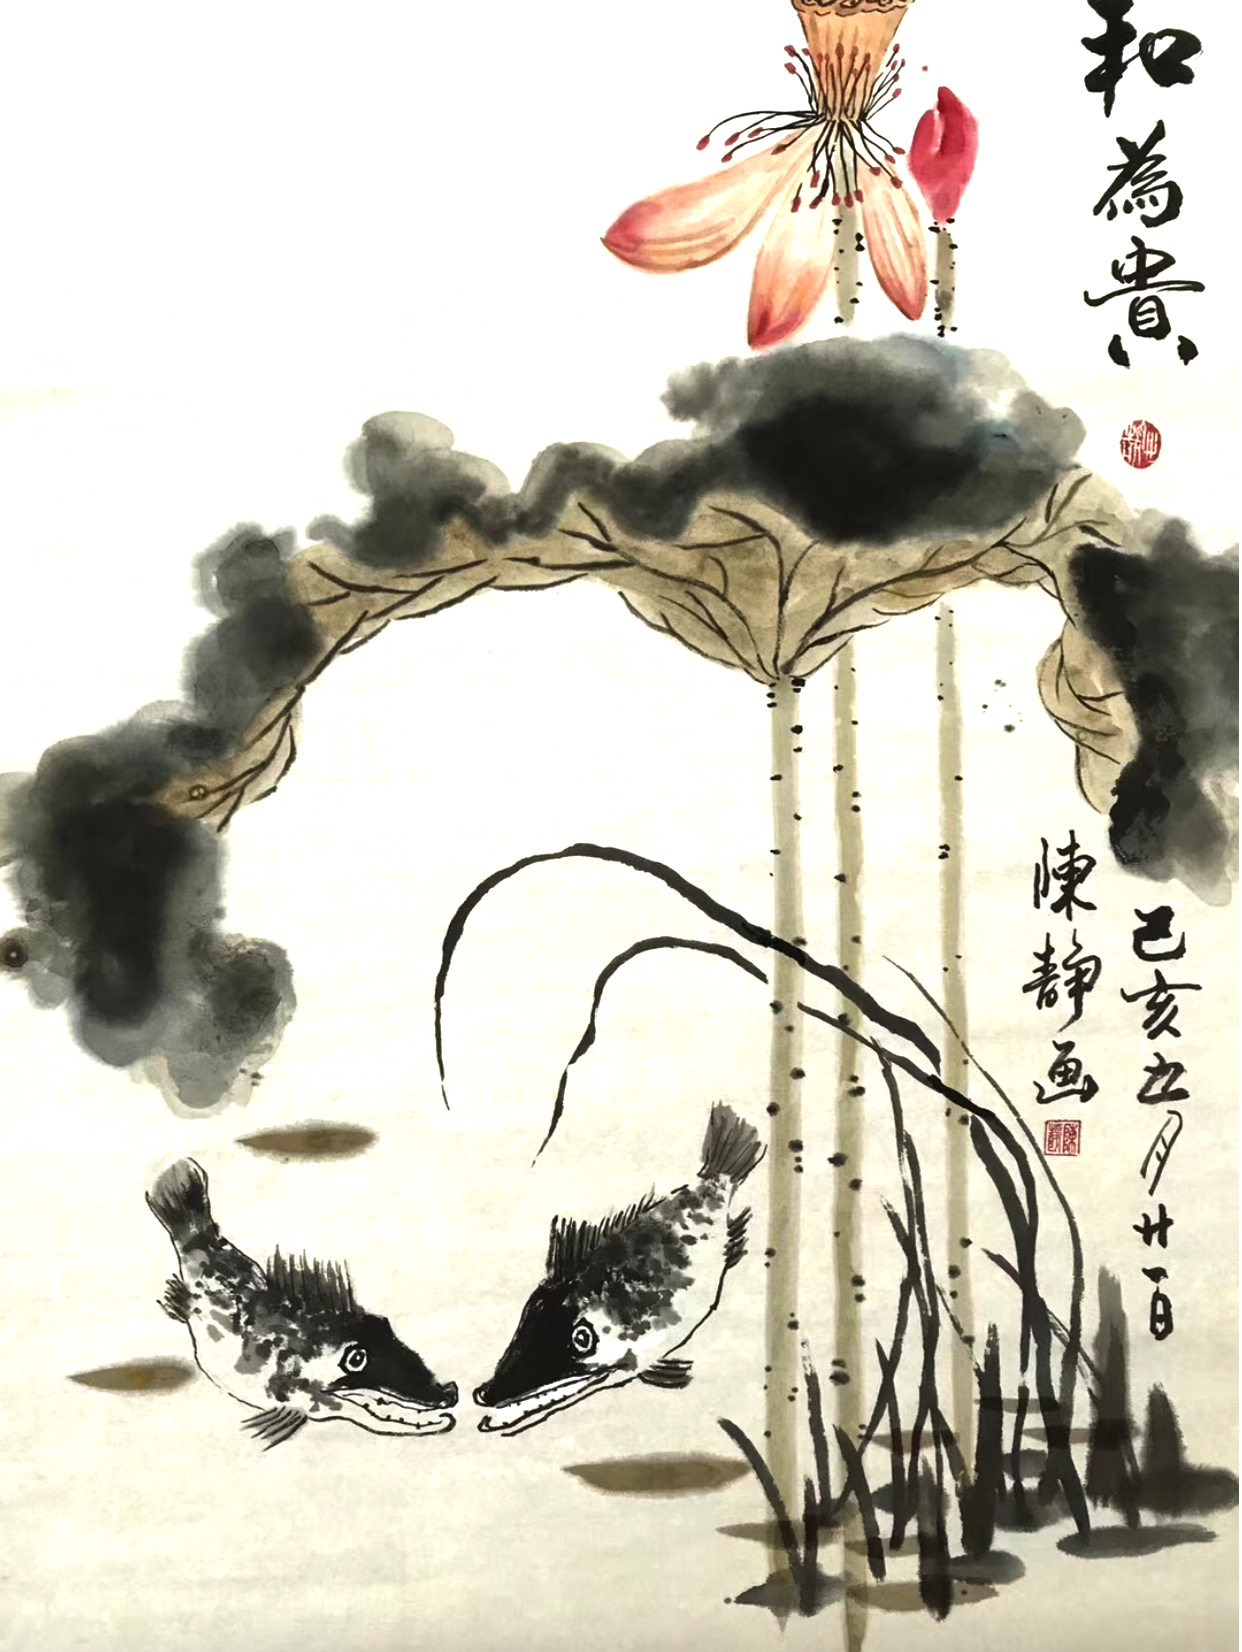 和為貴
己亥五月廿一日
陳靜画